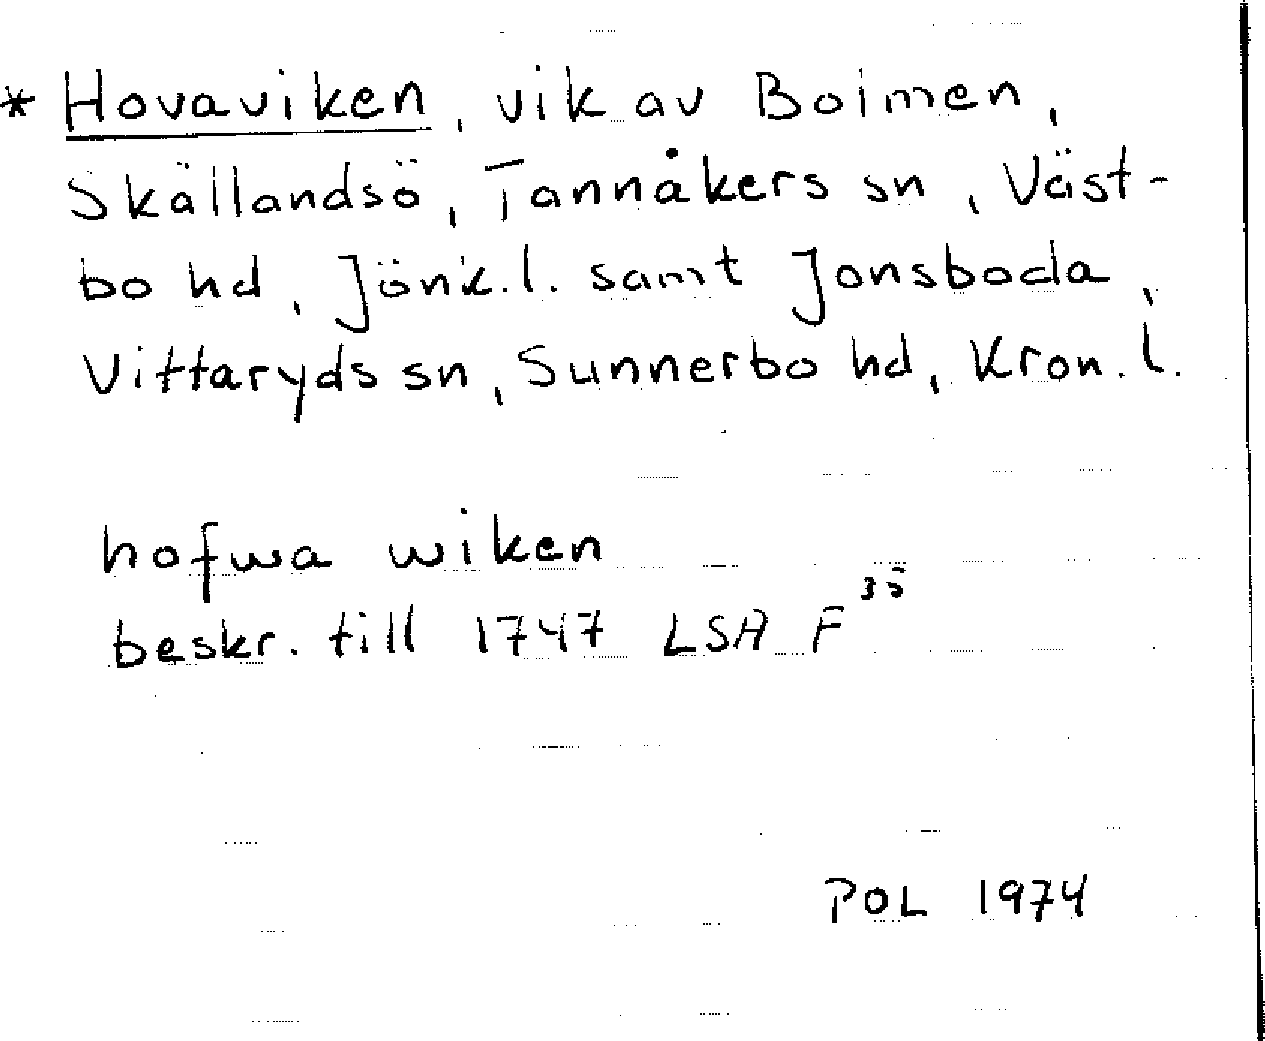 * Hovaviken, vik av Bolmen,
Skållandsö, Tannåkers sn, Väst-
bo hd, Jönk.l. samt Jonsboda,
Vittaryds sn, Sunnerbo hd, Kron.l.
hofwa wiken
beskr. till 1747 LSA F 35
POL 1974